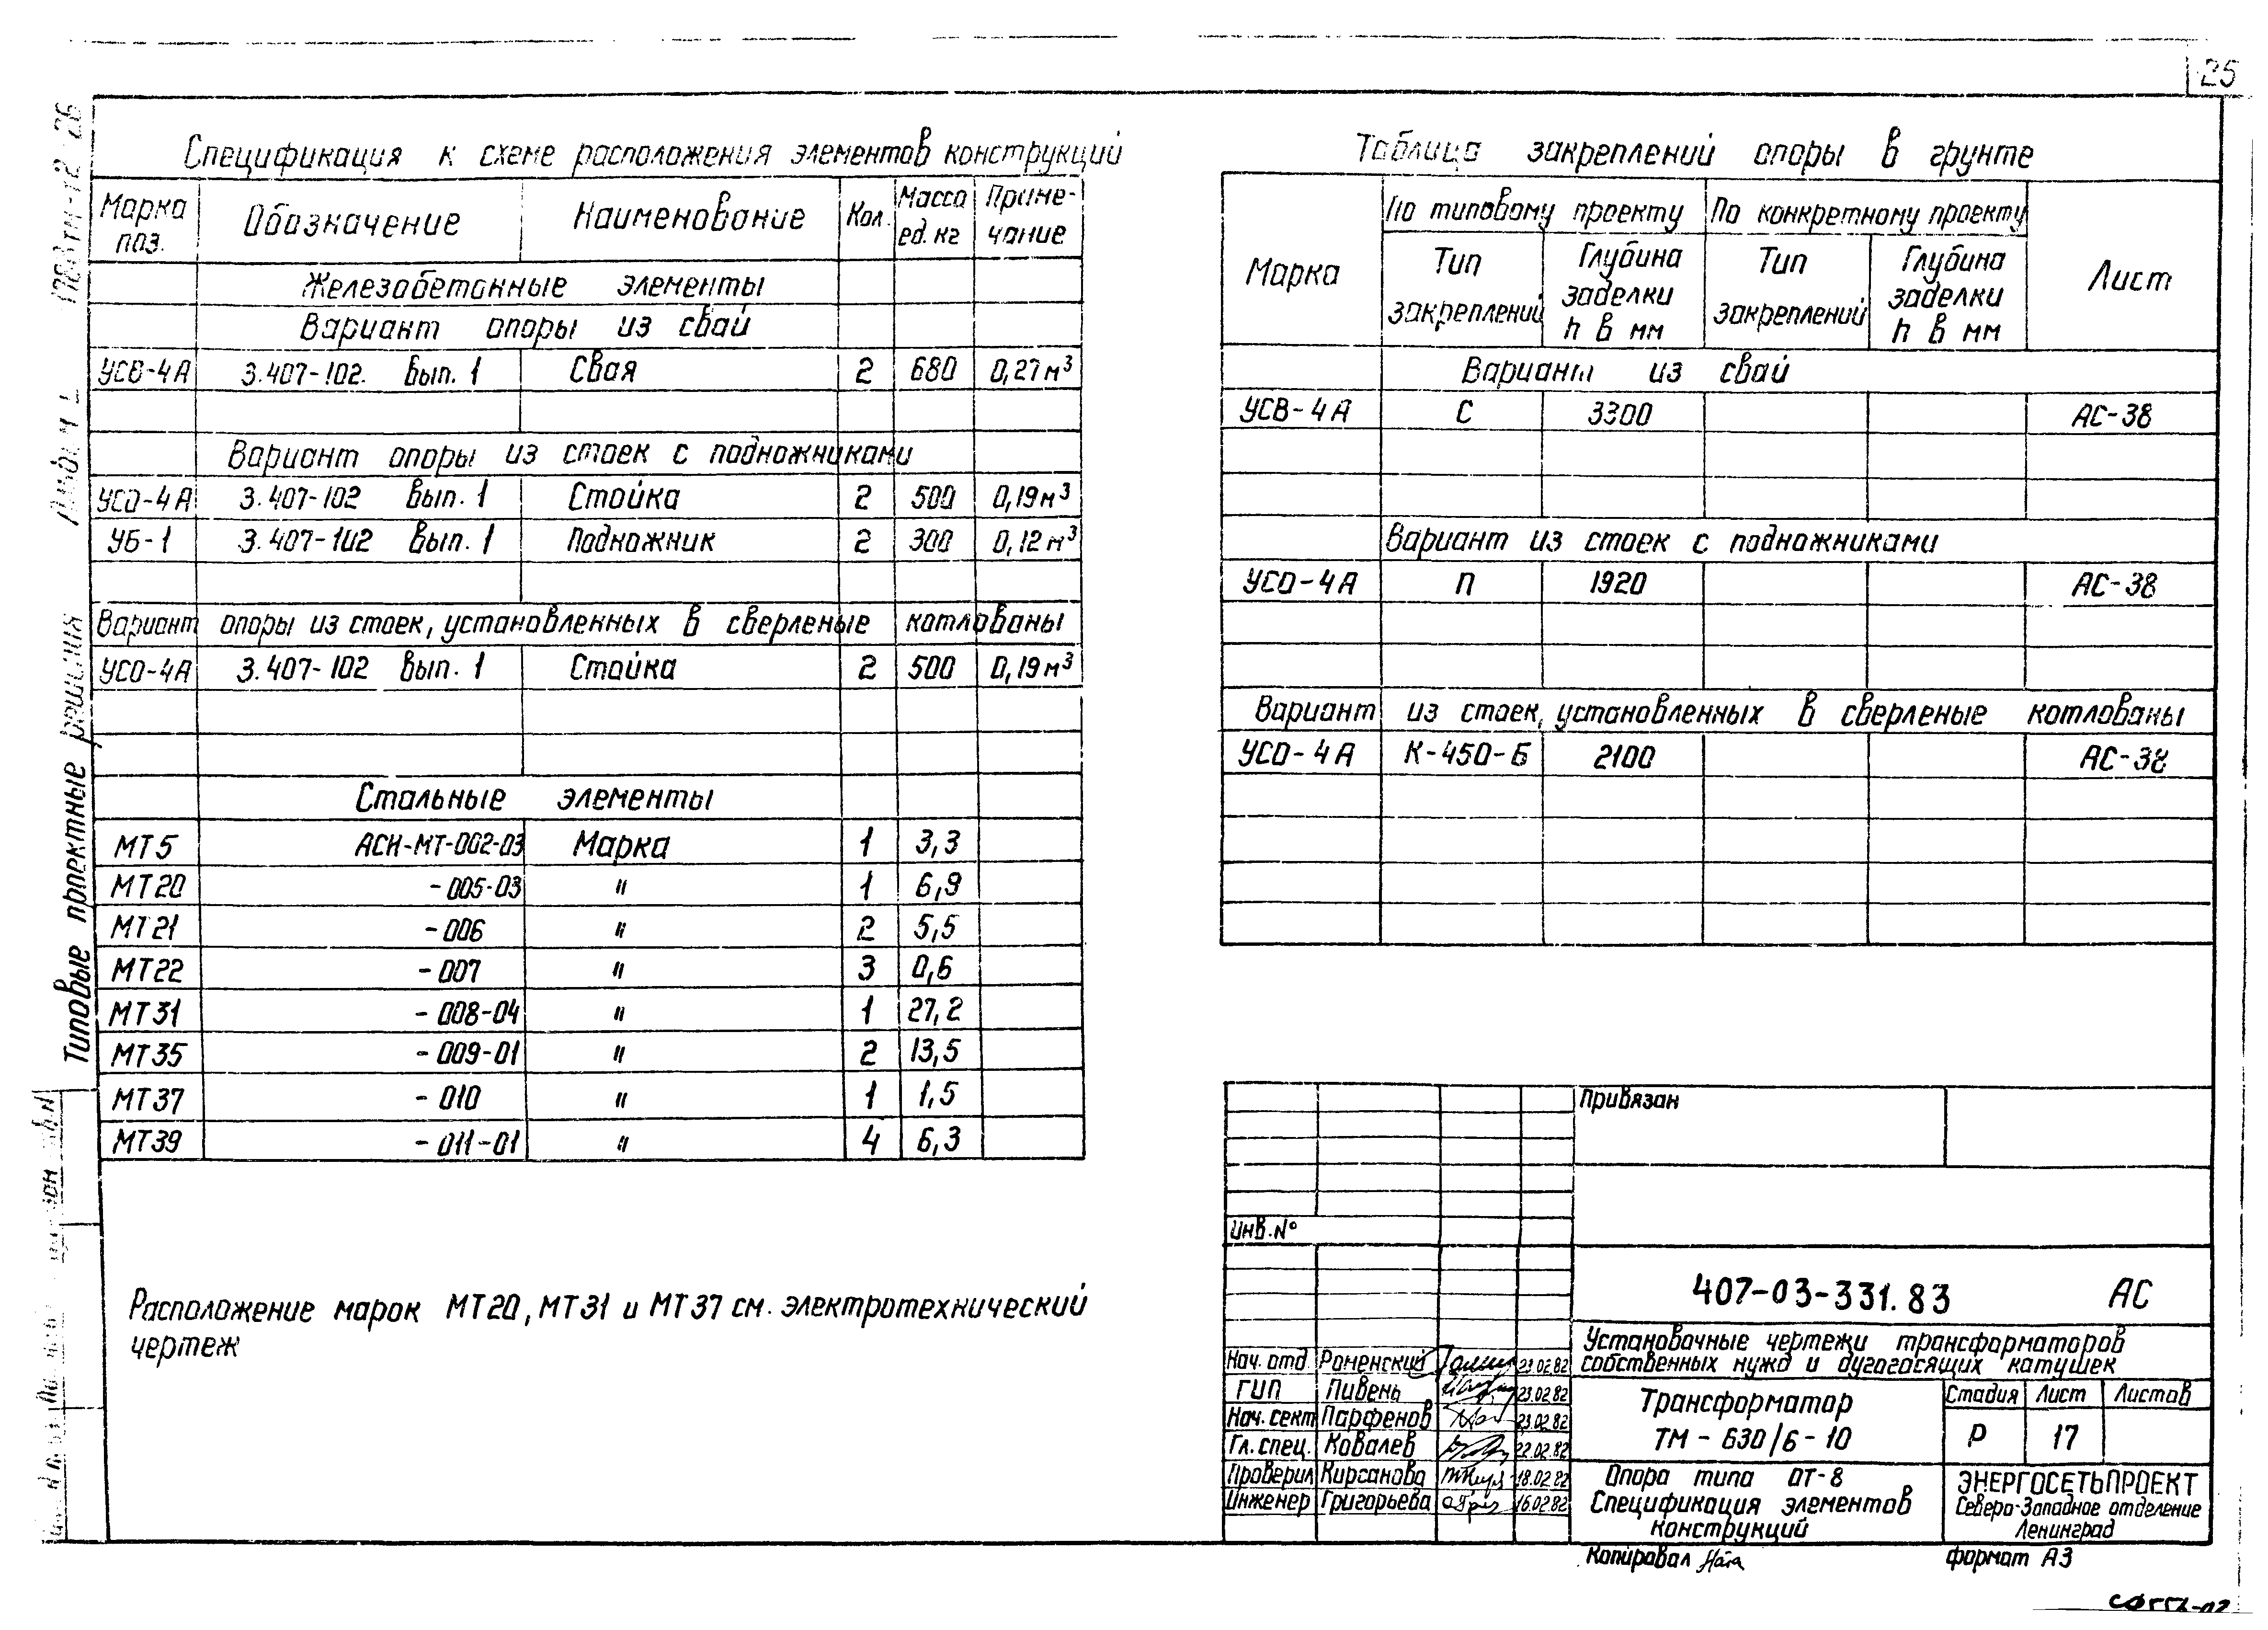 25
Спецификация к схеме расположения элементов конструкций
Марка поз. Обозначение Наименование Кол. Масса ед. кг Приме-чание
Железобетонные элементы
Вариант опоры из свай
УСВ-4А 3.407-102. Вып. 1 Свая 2 680 0,27м³
Вариант опоры из стоек с подножниками
УСО-4А 3.407-102 Вып. 1 Стойка 2 500 0,19м³
УБ-1 3.407-102 Вып. 1 Подножник 2 300 0,12м³
Вариант опоры из стоек, установленных в сверленые котлованы
УСО-4А 3.407-102 Вып. 1 Стойка 2 500 0,19м³
Стальные элементы
МТ5 АСИ-МТ-002-03 Марка 1 3,3
МТ20 -005-03 " 1 6,9
МТ21 -006 " 2 5,5
МТ22 -007 " 3 0,6
МТ31 -008-04 " 1 27,2
МТ35 -009-01 " 2 13,5
МТ37 -010 " 1 1,5
МТ39 -011-01 " 4 6,3
Расположение марок МТ20, МТ31 и МТ37 см. электротехнический
чертеж
Таблица закреплений опоры в грунте
Марка По типовому проекту По конкретному проекту Лист
Тип закреплений Глубина заделки h в мм Тип закреплений Глубина заделки h в мм
Вариант из свай
УСВ-4А С 3300 АС-38
Вариант из стоек с подножниками
УСО-4А П 1920 АС-38
Вариант из стоек, установленных в сверленые котлованы
УСО-4А К-450-Б 2100 АС-38
Привязан
Инв.N°
407-03-331.83 АС
Установочные чертежи трансформаторов
собственных нужд и дугогасящих катушек
Нач. отд. Роменский 23.02.82
ГИП Пивень 23.02.82
Нач. сект Парфенов 23.02.82
Гл. спец. Ковалев 22.02.82
Проверил Кирсанова 18.02.82
Инженер Григорьева 16.02.82
Трансформатор
ТМ-630/6-10
Стадия Лист Листов
Р 17
Опора типа ОТ-8
Спецификация элементов
конструкций
ЭНЕРГОСЕТЬПРОЕКТ
Северо-Западное отделение
Ленинград
Копировал
формат А3
Типовые проектные решения